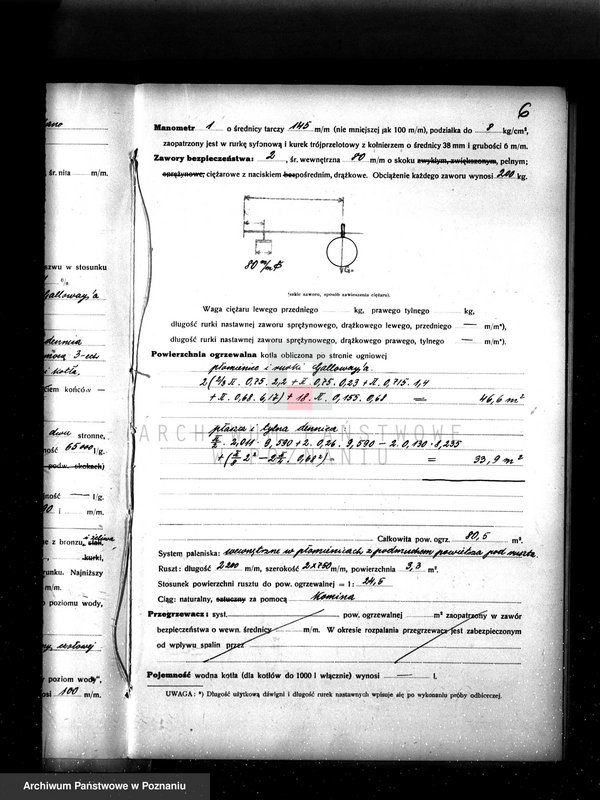 6
Manometr 1 o średnicy tarczy 145 m/m (nie mniejszej jak 100 m/m), podziałka do 8 kg/cm²,
zaopatrzony jest w rurkę syfonową i kurek trójprzelotowy z kołnierzem o średnicy 38 mm i grubości 6 m/m.
Zawory bezpieczeństwa: 2, śr. wewnętrzna 80 m/m o skoku zwykłym, zwiększonym, pełnym;
sprężynowe, ciężarowe z naciskiem bezpośrednim, drążkowe. Obciążenie każdego zaworu wynosi 200 kg.
80 m/m
G
(szkic zaworu, sposób zawieszenia ciężaru).
Waga ciężaru lewego przedniego kg, prawego tylnego kg,
długość rurki nastawnej zaworu sprężynowego, drążkowego lewego, przedniego — m/m*),
długość rurki nastawnej zaworu sprężynowego, drążkowego prawego, tylnego — m/m*).
Powierzchnia ogrzewalna kotła obliczona po stronie ogniowej
płomienice i rurki Galloway'a.
2(2/3 π. 0,75. 2,2 + π. 0,75. 0,23 + π. 0,715. 1,4
+ π. 0,68. 6,17) + 18. π. 0,155. 0,68 = 46,6 m²
płaszcz i tylna dennica
π/2. 2,011. 9,590 + 2. 0,26. 9,590 – 2. 0,130. 8,235
+ (π/8 2² – 2 π/4. 0,68²) = 33,9 m²
ARCHIWUM PAŃSTWOWE
W POZNANIU
Całkowita pow. ogrz. 80,5 m².
System paleniska: wewnętrzne w płomienicach z podmuchem powietrza pod ruszta
Ruszt: długość 2.200 m/m, szerokość 2x750 m/m, powierzchnia 3,3 m².
Stosunek powierzchni rusztu do pow. ogrzewalnej = 1: 24,5
Ciąg: naturalny, sztuczny za pomocą Komina
Przegrzewacz: syst. pow. ogrzewalnej m² zaopatrzony w zawór
bezpieczeństwa o wewn. średnicy m/m. W okresie rozpalania przegrzewacz jest zabezpieczonym
od wpływu spalin przez
Pojemność wodna kotła (dla kotłów do 1000 l włącznie) wynosi — l.
UWAGA: *) Długość użytkową dźwigni i długość rurek nastawnych wpisuje się po wykonaniu próby odbiorczej.
śr. nita m/m.
w stosunku
Galloway'a
dennica
3-ech
i kotła.
końców —
dwu stronne,
65000 l/g.
podw. skokach)
— l/g.
90 i m/m.
z bronzu, stali, i żeliwa
kurki,
Najniższy
m/m.
poziomu wody,
poziom wody",
100 m/m.
Archiwum Państwowe w Poznaniu